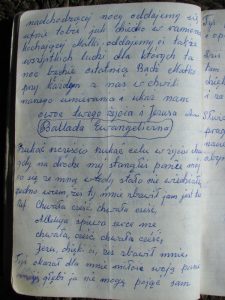 nadchodzącej nocy oddajemy się
ufnie tobie jak dziecko w ramiona
kochającej Matki oddajemy ci także
wszystkich ludzi dla których ta
noc będzie ostatnią Bądź Matko
przy każdym z nas w chwili
naszego umierania i ukaż nam
owoc twego życia Jezusa
Ballada Ewangeliczna
Szukać szczęścia szukać celu w życiu
gdy na drodze mej stanąłeś panie mój
co się ze mną wtedy stało nie
jedno wiem, żeś ty mnie zbawił jam jest tu
Ref Chwała cześć, chwała cześć,
Alleluja śpiewa serce me
chwała, cześć chwała cześć,
Jezu, dzięki ci, żeś zbawił mnie,
Tyś okazał dla mnie miłość swoją panie
głębi ja nie mogę pojąć sam